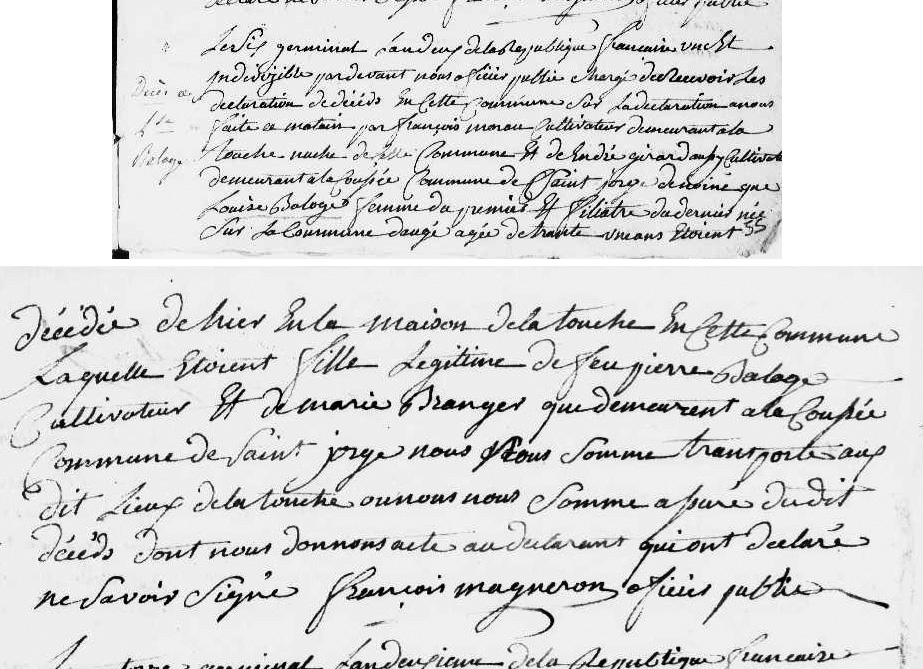 Le Six germinal Landeux delaRepublique francaise une Et
Indivizible pardevant nous oficier public chargé de Recevoir les
declaration de décéds En Cette Commune Sur La declaration anous
faite ce matain par françois morau Cultivateur demeurant a la
touche de Cette Commune Et de André girard Cultivat
demeurant a la Coupsée Commune de Saint jorge denoiné que
Louise Baloge femme du premier Et filiatre du dernier née
Sur La Commune daugé agée de trante une ans Etoient 55
Décès de
Lse
Baloge
décédée de hier En la maison de la touche En Cette Commune
Laquelle Etoient fille Legitime de feu pierre Baloge
Cultivateur Et de marie Branger que demeurent a la Coupsée
Commune de Saint jorge nous Nous Somme transporte aux
dit Lieux de la touche ou nous nous Somme assuré du dit
décéds dont nous donnons acte au declarant qui ont declaré
ne Savoir Signé françois magneron oficier public
germinal Landeuxieme de la Republique francaise